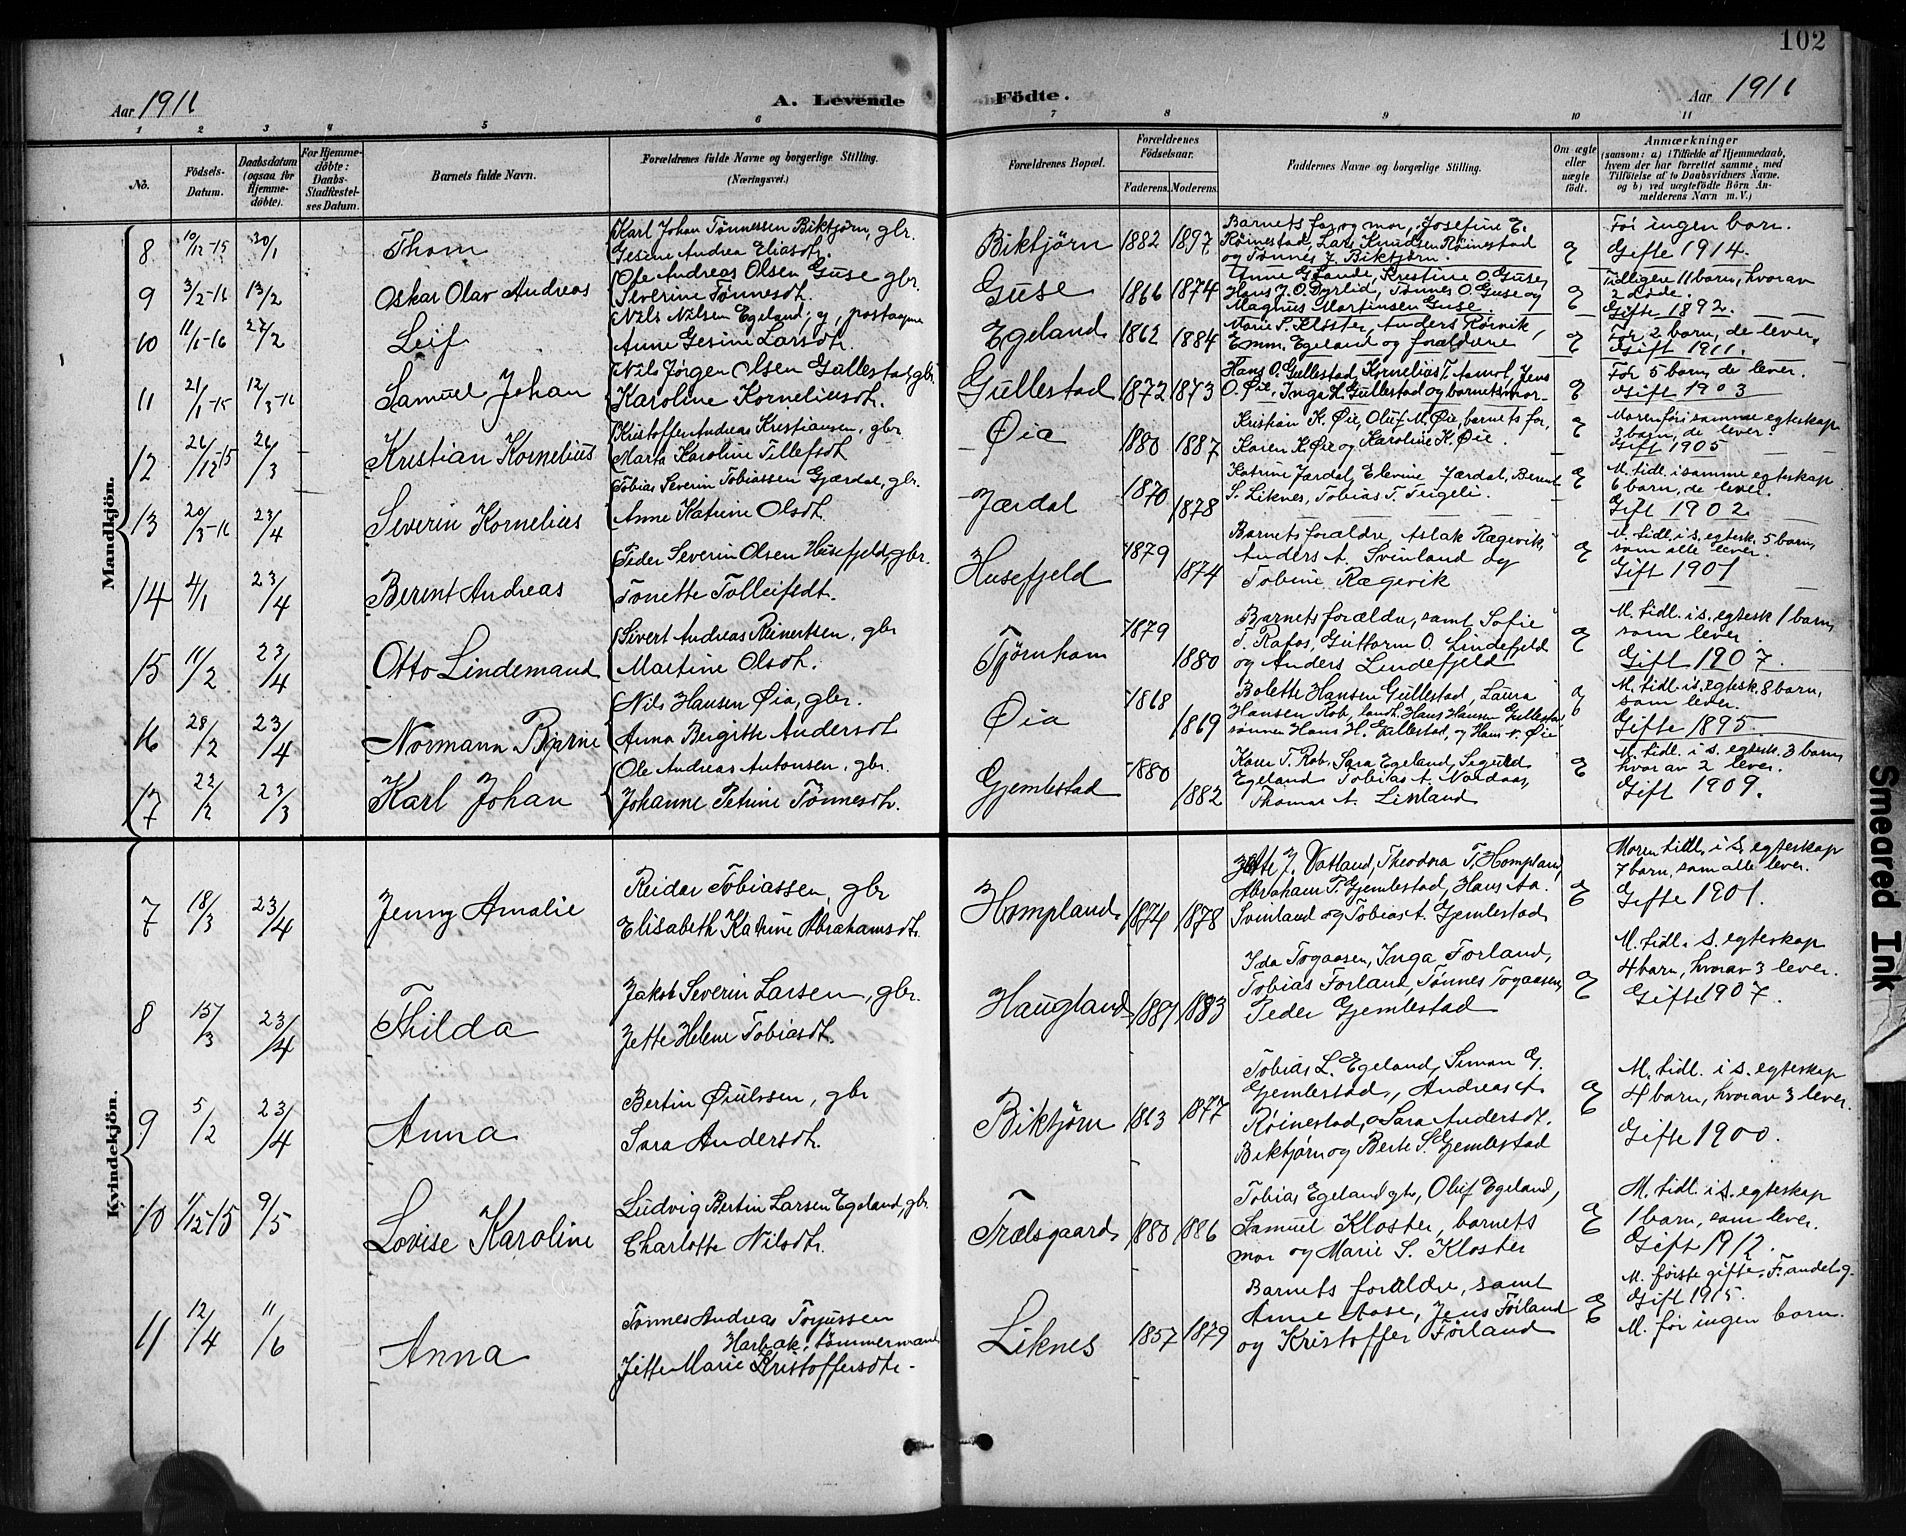 102
Aar 1916
A. Levende
Födte.
Aar 1916
1 2 3 4 5 6 7 8 9 10 11
No.
Födsels-
Datum.
Daabsdatum
(ogsaa for
Hjemme-
döbte).
For Hjemme-
döbte:
Daabs-
Stadfæstel-
ses Datum.
Barnets fulde Navn.
Forældrenes fulde Navne og borgerlige Stilling.
(Næringsvei.)
Forældrenes Bopæl.
Forældrenes
Födselsaar.
Faderens. Moderens.
Faddernes Navne og borgerlige Stilling.
Om ægte
eller
uægte
født.
Anmærkninger
(saasom: a) i Tilfælde af Hjemmedaab,
hvem der har forrettet samme, med
Tilföielse af to Daabsvidners Navne,
og b) ved uægtefödte Börn An-
melderens Navn m. V.)
Mandkjön.
8 10/12-15 30/1 Thom
Karl Johan Tønnessen Biktjørn, gbr.
Gesine Andrea Eliasdtr.
Biktjørn 1882 1897
Barnets far og mor, Josefine E.
Røinestad, Lars Knudsen Røinestad
og Tønnes J. Biktjørn.
Før ingen barn.
Gifte 1914.
9 3/2-16 13/2 Oskar Olav Andreas
Ole Andreas Olsen Guse gbr.
Severine Tønnesdtr.
Guse 1866 1874
Kristine O. Guse,
Hans J. O. Dyrlid, Tønnes O. Guse og
Magnus Martinsen Guse
Tidligere 11 barn, hvorav
2 døde.
Gifte 1892.
10 11/1-16 27/2 Leif
Nils Nilsen Egeland,
Anne Gesine Larsdtr.
Egeland 1862 1884
Marie S. Kloster, Anders Rørvik,
Emm. Egeland og forældrene
Før 2 barn, de lever.
Gift 1911.
11 21/1-15 12/3-16 Samuel Johan
Nils Jørgen Olsen Gullestad, gbr.
Karoline Korneliusdtr.
Gullestad 1872 1873
Hans O. Gullestad, Kornelius T. Aamot, Jens
O. Øie, Inga K. Gullestad og barnets mor
Før 5 barn, de lever.
Gift 1903
12 26/12-15 26/3 Kristian Kornelius
Kristoffer Andreas Kristiansen, gbr.
Marta Karoline Tillefsdtr
Øia 1880 1887
Kristian K. Øie, Oluf M. Øie, barnets far,
Karen K. Øie og Karoline K. Øie.
Moren før i samme egteskap
3 barn, de lever.
Gift 1905
13 20/3-16 23/4 Severin Kornelius
Tobias Severin Tobiassen Gjærdal, gbr.
Anne Katrine Olsdtr.
Jærdal 1870 1878
Katrine Jærdal, Elevine Jærdal, Berent
S. Liknes, Tobias T. Teigeli.
M. tidl. i samme egteskap
6 barn, de lever.
Gift 1902
14 4/1 23/4 Berent Andreas
Peder Severin Olsen Husefjeld, gbr.
Tonette Tolleifsdt.
Husefjeld 1879 1874
Barnets forældre, Aslak Rægevik,
Anders A. Svinland og
Tobine Rægevik
M. tidl. i s. egtesk. 5 barn,
som alle lever.
Gift 1901
15 11/2 23/4 Otto Lindemand
Sivert Andreas Reinertsen, gbr
Martine Olsdtr.
Tjørnhom 1879 1880
Barnets forældre, samt Sofie
T. Rafos, Guttorm O. Lindefjeld
og Anders Lindefjeld
M. tidl. i s. egtesk 1 barn,
som lever.
Gift 1907.
16 28/2 23/4 Normann Bjarne
Nils Hansen Øia, gbr.
Anna Bergitte Andersdt
Øia 1868 1869
Bolette Hansen Gullestad, Laura
Hansen Rob, landh. Hans Hansen Gullestad,
sønnen Hans H. Gullestad, og Hans N. Øie
M. tidl. i s. egtesk. 8 barn,
som lever.
Gifte 1895.
17 22/2 23/3 Karl Johan
Ole Andreas Antonsen, gbr.
Johanne Petrine Tønnesdtr.
Gjemlestad 1880 1882
Karen T. Rob, Sara Egeland, Sigurd
Egeland Tobias A. Nordaas,
Thomas A. Linland
M. tidl. i s. egtesk. 3 barn,
hvorav 2 lever.
Gift 1909.
Kvindekjön.
7 18/3 23/4 Jenny Amalie
Reidar Tobiassen, gbr
Elisabeth Katrine Abrahamsdtr.
Hompland 1874 1878
J. Vatland, Theodora T. Hompland,
Abraham P. Gjemlestad, Hans Aa.
Svinland og Tobias A. Gjemlestad
Moren tidl. i s. egteskap
7 barn, som alle lever.
Gifte 1901.
8 15/3 23/4 Thilda
Jakob Severin Larsen, gbr.
Jette Helene Tobiasdtr.
Haugland 1881 1883
Ida Togaasen, Inga Forland,
Tobias Forland, Tønnes Togaasen,
Peder Gjemlestad
M. tidl. i s. egteskap
4 barn, hvorav 3 lever.
Gifte 1907.
9 5/2 23/4 Anna
Bertin Øiulssen, gbr
Sara Andersdtr.
Biktjørn 1863 1877
Tobias L. Egeland, Simon G.
Gjemlestad, Andreas A
Røinestad, Sara Andersdt.
Biktjørn og Berte S. Gjemlestad
M. tidl. i s. egteskap
4 barn, hvorav 3 lever.
Gifte 1900.
10 11/12 15 9/5 Lovise Karoline
Ludvig Bertin Larsen Egeland, gbr
Charlotte Nilsdtr.
Trælsgaard 1880 1886
Tobias Egeland, Oluf Egeland,
Samuel Kloster, barnets
mor og Marie S. Kloster
M. tidl. i s. egteskap
1 barn, som lever.
Gift 1912.
11 12/4 11/6 Anna
Tønnes Andreas Torjussen
Harbak, tømmermand
Jette Marie Kristoffersdtr.
Liknes 1857 1879
Barnets forældre, samt
Anne Aase, Jens Førland
og Kristoffer Førland
M. første gifte. F. andet g.
Gift 1915.
M. før ingen barn.
Smeared Ink